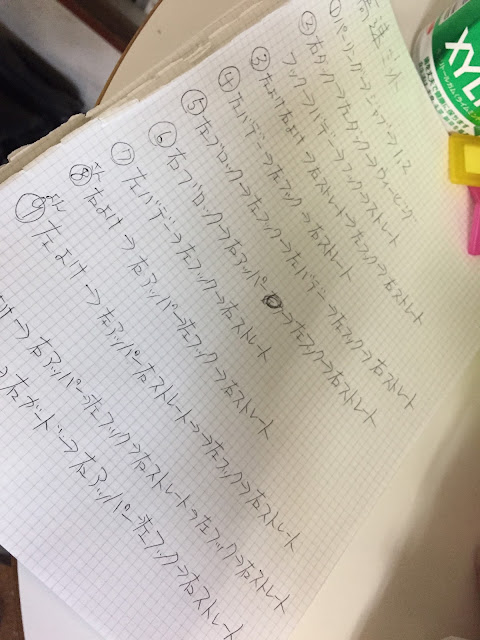 ①パーリング→ジャブ→1、2
②右ダック→左ダック→ウィービング
フック→バデー→フック→ストレート
③左よけ右よけ→右ストレート→左フック→右ストレート
④左バデー→左フック→右ストレート
⑤左ブロック→左フック→左バデー→左フック→右ストレート
⑥右ブロック→右アッパー→左フック→右ストレート
⑦左バデー→左フック→右ストレート
⑧右よけ→右アッパー→左フック→右ストレート
⑨左よけ→左アッパー右ストレート→左フック→右ストレート
→右アッパー→左フック→右ストレート→左フック→右ストレート
→右ガード→右アッパー→左フック→右ストレート
XYLI